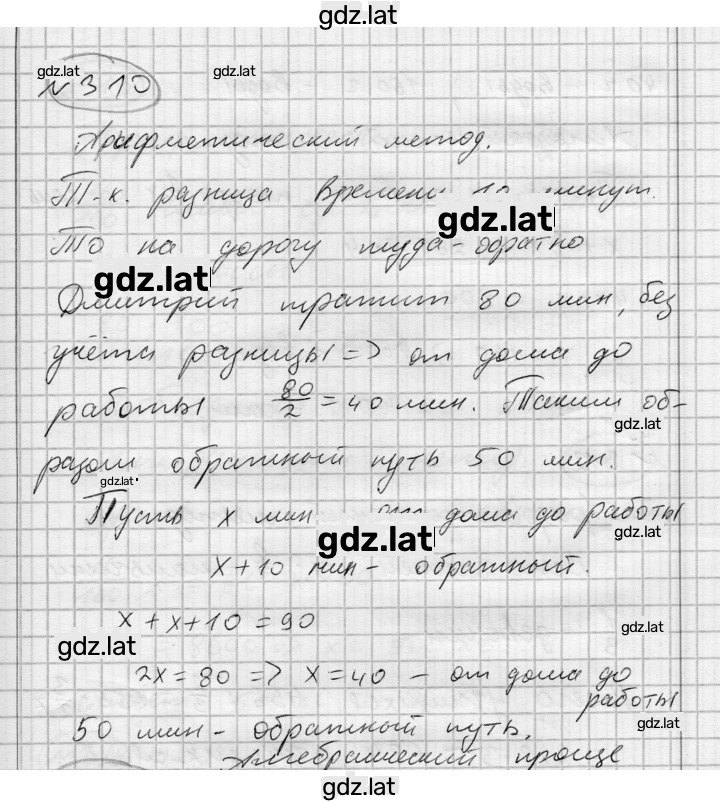 gdz.lat
gdz.lat gdz.lat
№ 310
Арифметический метод.
Т.к. разница времени 10 минут.
gdz.lat
То на дорогу туда-обратно
gdz.lat
Дмитрий тратит 80 мин, без
учёта разницы => от дома до
работы 80/2 = 40 мин. Таким об-
gdz.lat
разом обратный путь 50 мин.
gdz.lat
Пусть x мин дома до работы
gdz.lat gdz.lat
x+10 мин - обратный.
x + x+10 = 90
gdz.lat gdz.lat
2x = 80 => x = 40 - от дома до
работы
gdz.lat
50 мин - обратный путь.
Алгебраический проще
gdz.lat